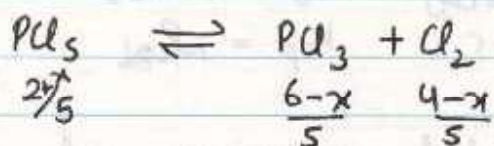 PCl₅ ⇌ PCl₃ + Cl₂
6-x/5 4-x/5